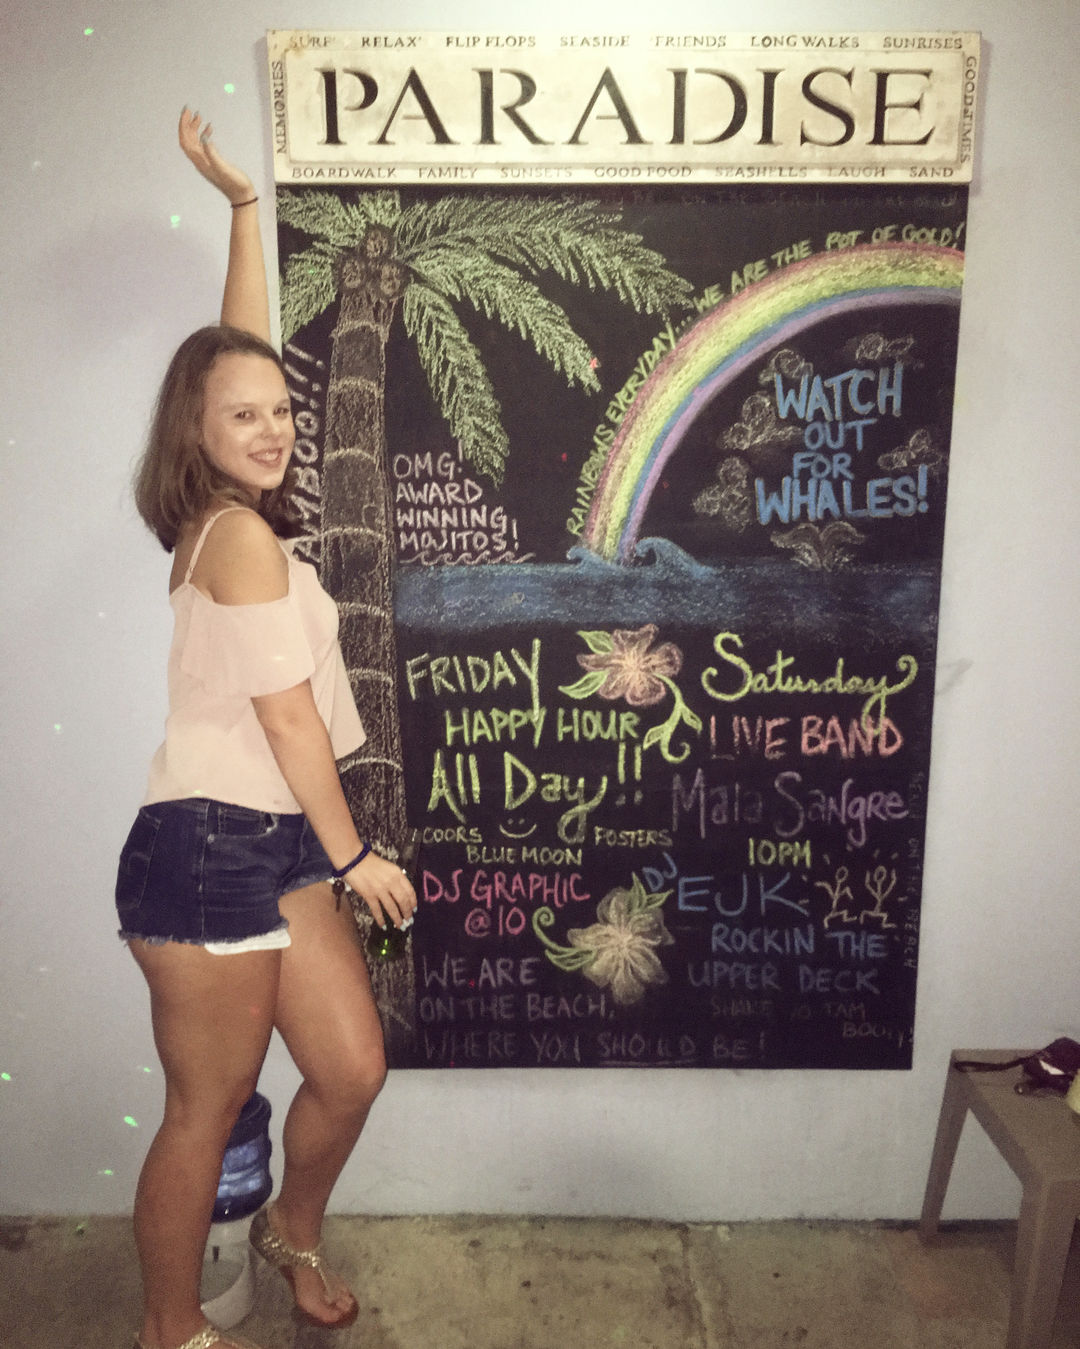 SURF RELAX FLIP FLOPS SEASIDE FRIENDS LONG WALKS SUNRISES
MEMORIES
PARADISE
GOOD TIMES
BOARDWALK FAMILY SUNSETS GOOD FOOD SEASHELLS LAUGH SAND
RAINBOWS EVERYDAY... WE ARE THE POT OF GOLD!
AMBOO!!!
WATCH
OUT
FOR
WHALES!
OMG!
AWARD
WINNING
MOJITOS!
FRIDAY
HAPPY HOUR
All Day!!
COORS FOSTERS
BLUE MOON
DJ GRAPHIC
@10
WE ARE
ON THE BEACH,
WHERE YOU SHOULD BE!
Saturday
LIVE BAND
Mala Sangre
10PM
DJ
EJK
ROCKIN THE
UPPER DECK
SHAKE YO TAM
BOO